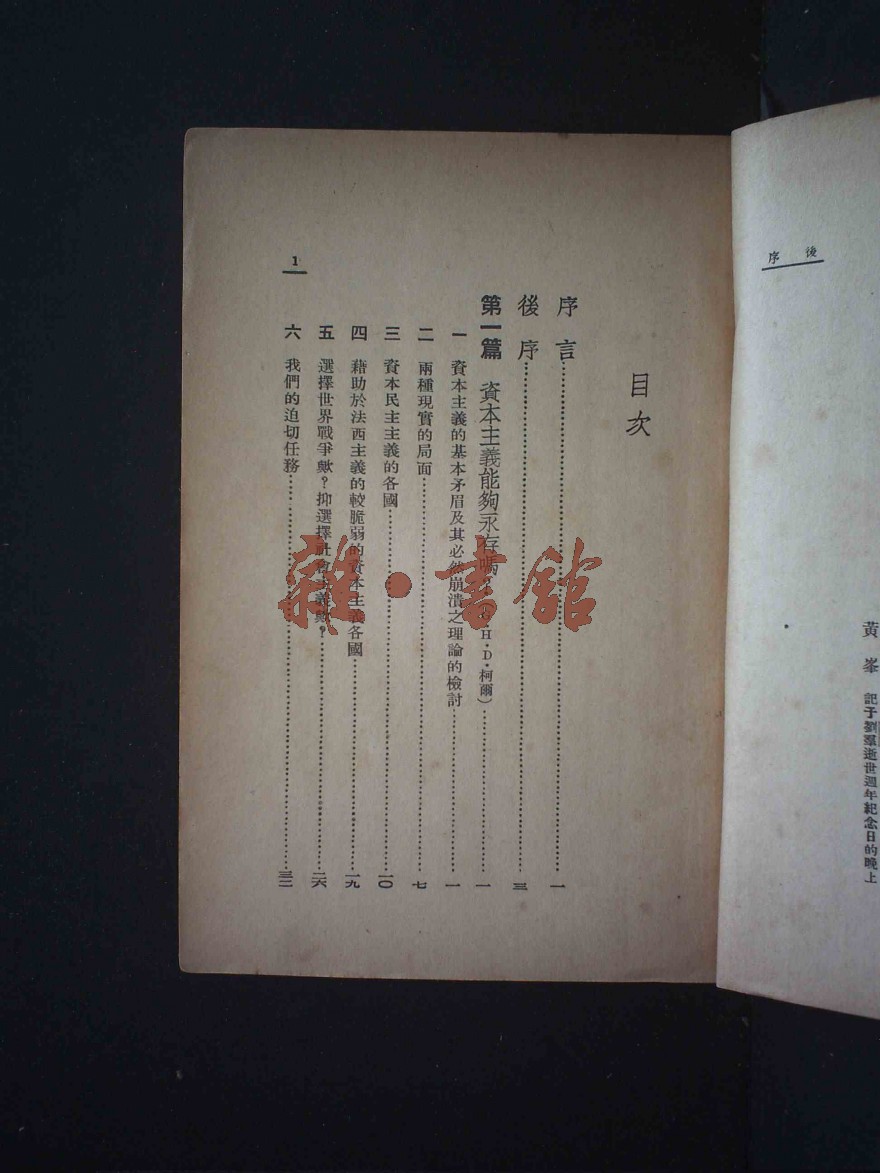 後序
黃峯 記于劉羣逝世週年紀念日的晚上
目次
序言……一
後序……三
第一篇 資本主義能夠永存嗎？（G·H·D·柯爾）……一
一 資本主義的基本矛盾及其必然崩潰之理論的檢討……一
二 兩種現實的局面……七
三 資本民主主義的各國……一〇
四 藉助於法西主義的較脆弱的資本主義各國……一九
五 選擇世界戰爭歟？抑選擇社會主義歟？……二六
六 我們的迫切任務……三二
1
雜·書館